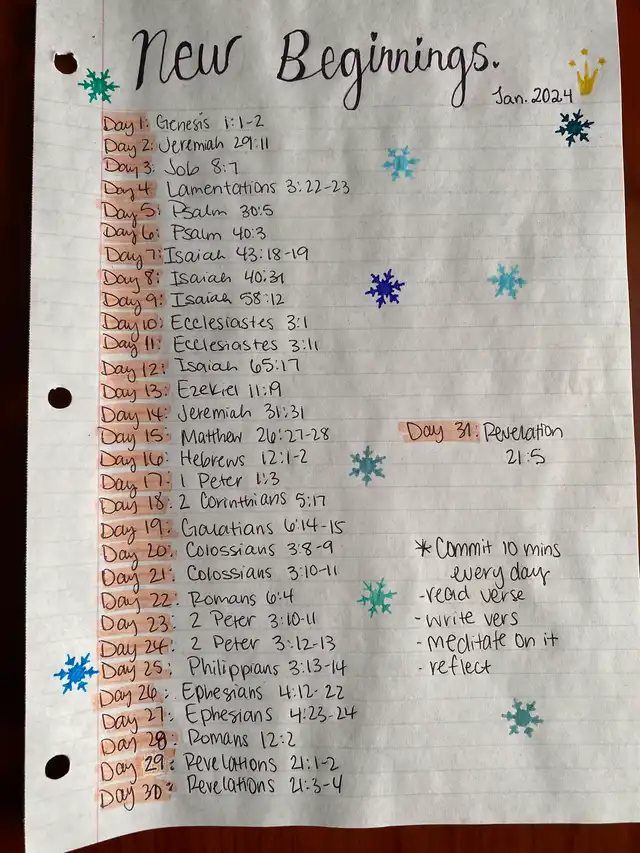 New Beginnings.
Jan. 2024
Day 1: Genesis 1:1-2
Day 2: Jeremiah 29:11
Day 3: Job 8:7
Day 4: Lamentations 3:22-23
Day 5: Psalm 30:5
Day 6: Psalm 40:3
Day 7: Isaiah 43:18-19
Day 8: Isaiah 40:31
Day 9: Isaiah 58:12
Day 10: Ecclesiastes 3:1
Day 11: Ecclesiastes 3:11
Day 12: Isaiah 65:17
Day 13: Ezekiel 11:19
Day 14: Jeremiah 31:31
Day 15: Matthew 26:27-28
Day 16: Hebrews 12:1-2
Day 17: 1 Peter 1:3
Day 18: 2 Corinthians 5:17
Day 19: Galatians 6:14-15
Day 20: Colossians 3:8-9
Day 21: Colossians 3:10-11
Day 22: Romans 6:4
Day 23: 2 Peter 3:10-11
Day 24: 2 Peter 3:12-13
Day 25: Philippians 3:13-14
Day 26: Ephesians 4:12-22
Day 27: Ephesians 4:23-24
Day 28: Romans 12:2
Day 29: Revelations 21:1-2
Day 30: Revelations 21:3-4
Day 31: Revelation
21:5
* Commit 10 mins
every day
- read verse
- write vers
- meditate on it
- reflect